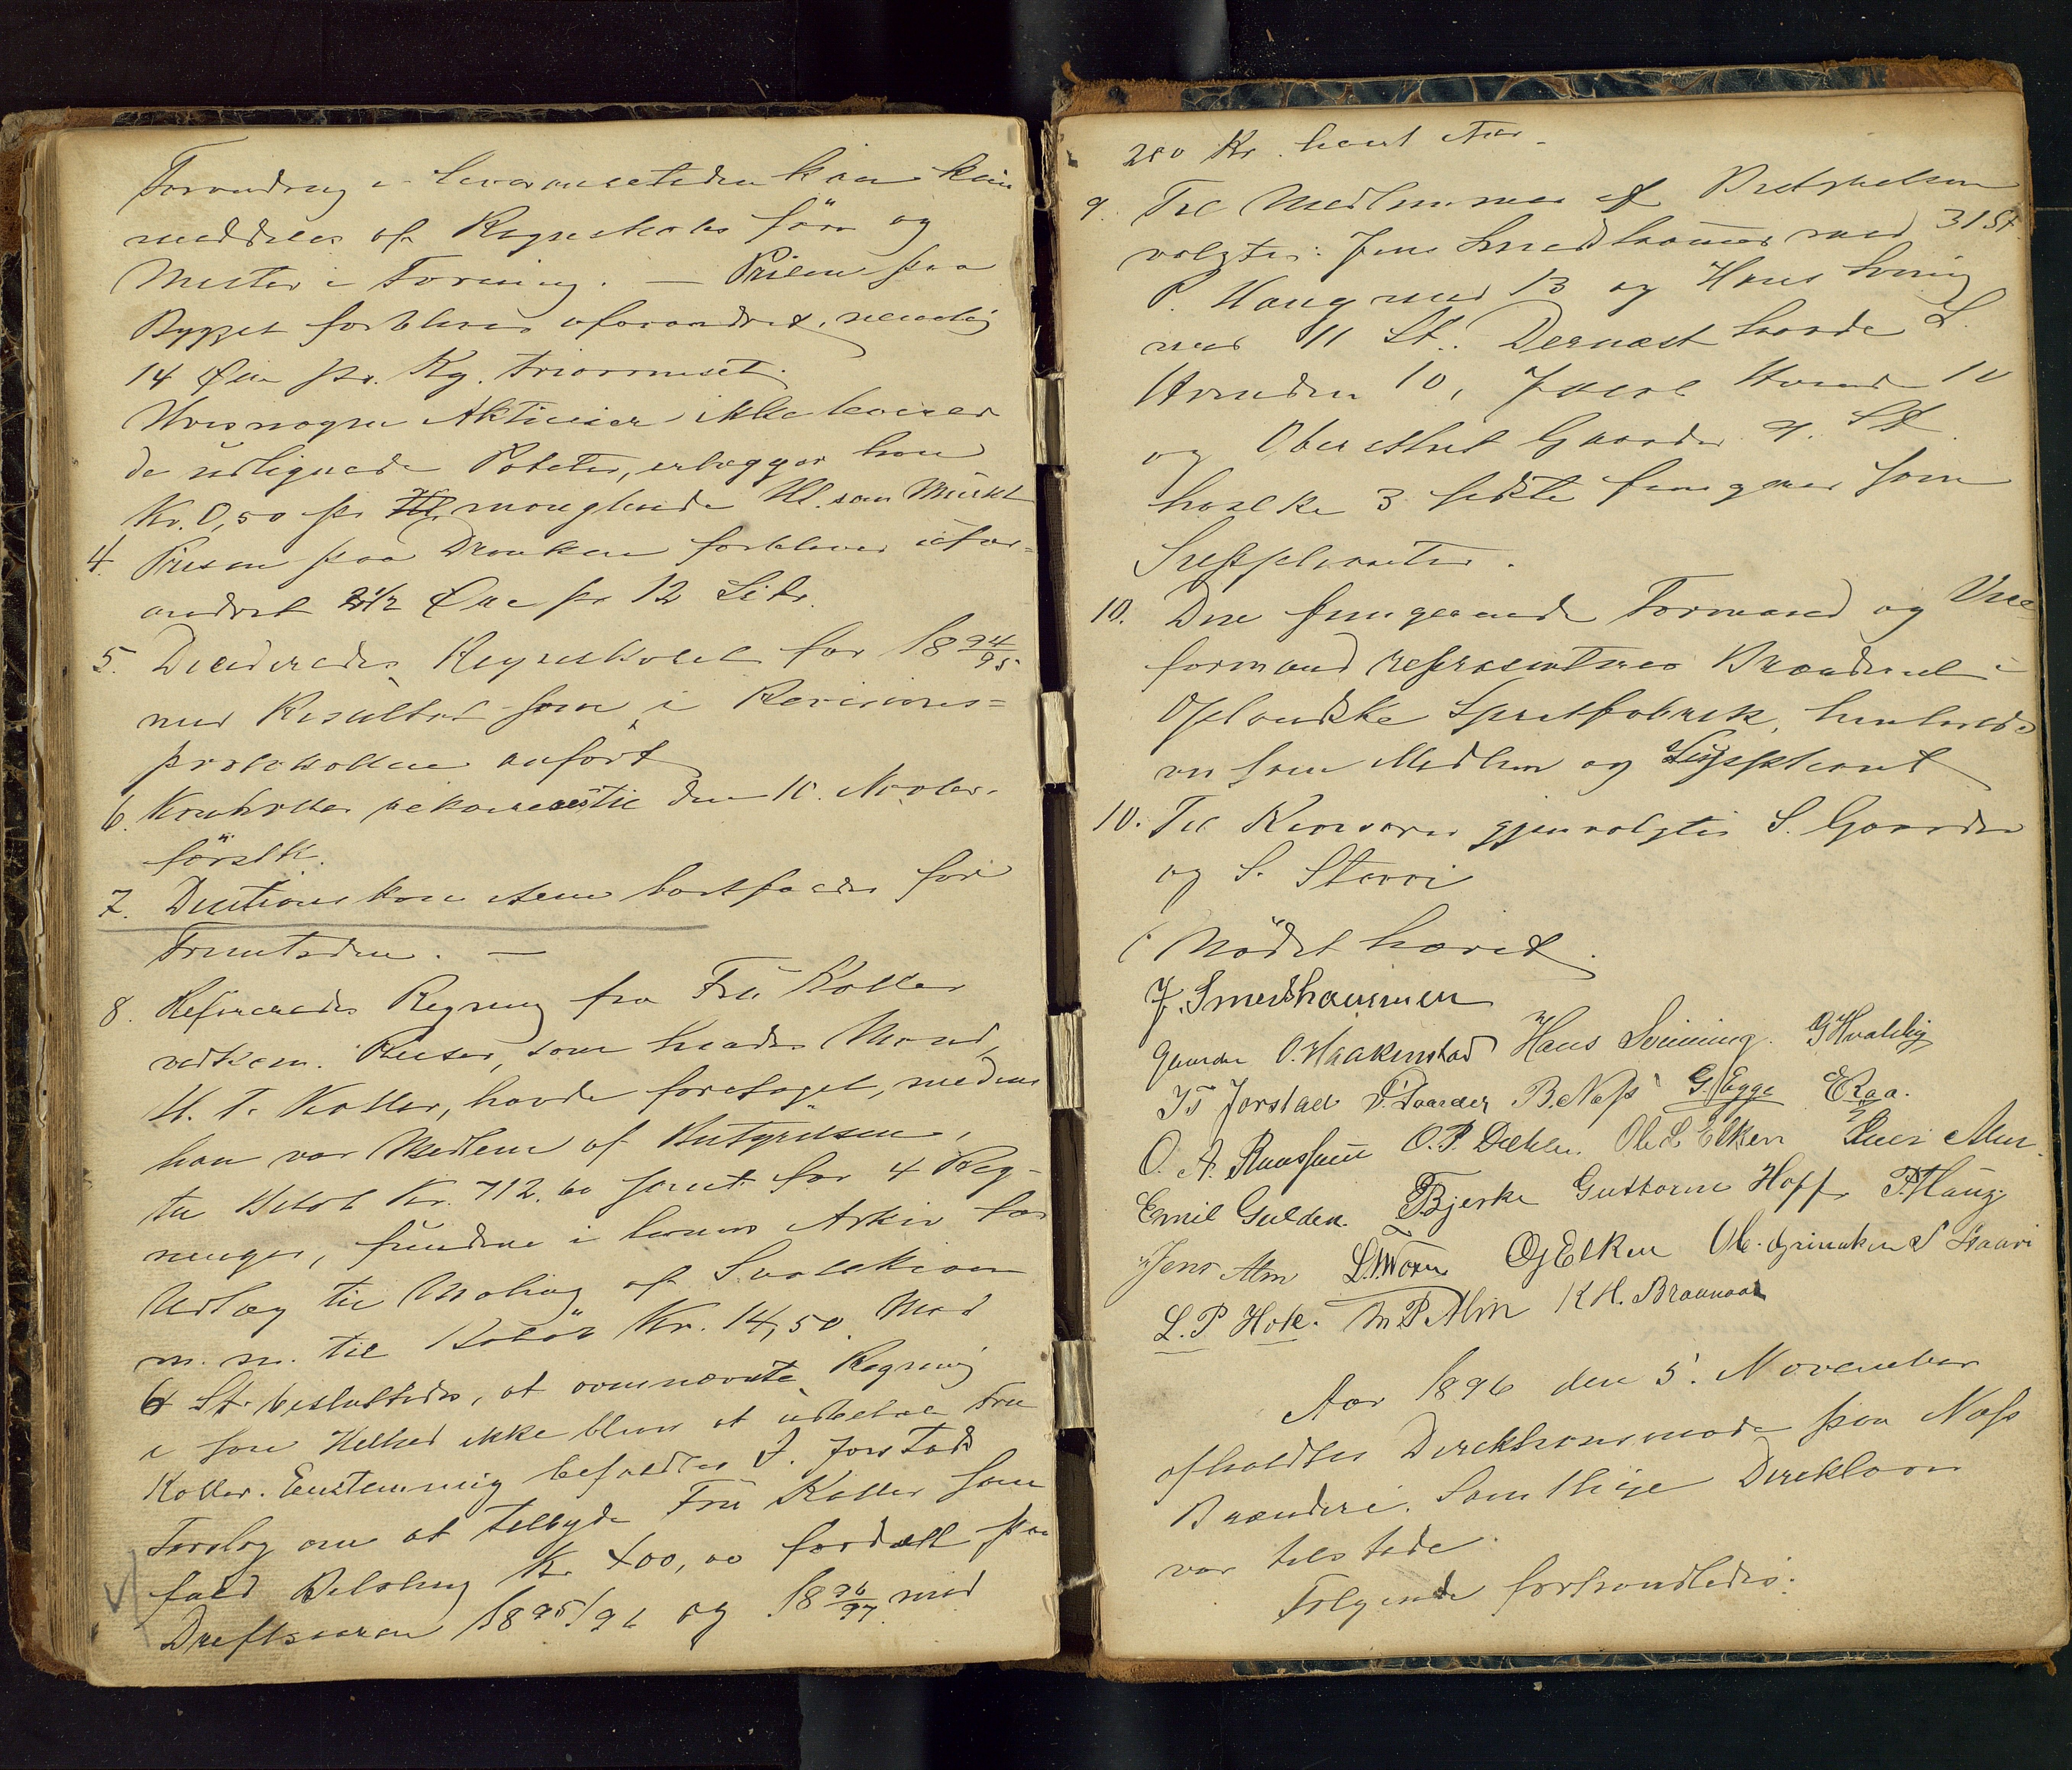 Forandring i Leveransetiden kan kun
meddeles af Regnskabsfører og
Mester i Forening. — Prisen paa
Bygget forbliver uforandret, nemlig
14 Øre pr. Kg.
Hvis nogen Aktieeier ikke leverer
de udlignede Poteter, erlægger han
Kr. 0,50 pr manglende Hl. som Mulkt
4. Prisen paa Dranken forbliver ufor-
andret 2 1/2 Øre pr 12 Litr.
5. Deciderades Regnskabet for 18 94/95
med Resultat som i Revisions-
protokollen anført
6. Kontrollen til den 10. Novbr.
førstk.
7. bortfalder for
Fremtiden. —
8. Refereredes Regning fra Fru Koller
vedkom. Reiser, som hendes Mand,
H. T. Koller, havde foretaget, medens
han var Medlem af Bestyrelsen,
til Beløb Kr. 712.60 samt for 4 Reg-
ninger, fundne i hans Arkiv for
Udlæg til Maling af
m. m. til Beløb Kr. 14,50. Mod
6 St. besluttedes, at ovennævnte Regning
i sin Helhed ikke blev at udbetale Fru
Koller. Enstemmig befaldtes J. Jorstads
Forslag om at tilbyde Fru Koller som
fuld Betaling Kr. 400,00 fordelt paa
Driftsaarene 1895/96 og 18 96/97 med
200 Kr. hvert Aar.
9. Til Medlemmer af Bestyrelsen
valgtes: Jens Smedshammer med 31 St.
P. Haug med 13 og Hans Svining
med 11 St. Dernæst havde L.
10, 10
og Ole Gaarder 9. St.
hvilke 3 sidste fungerer som
Suppleanter.
10. Den fungerende Formand og Vice-
formand repræsenterer Brænderiet i
Oplandske Spritfabrik, henholds-
vis som Medlem og Suppleant
10. Til Revisorer gjenvalgtes S. Gaarder
og S. Stavri
Mödet hævet.
J. Smedshammer
Gaarder O. Haakenstad Hans Svinning. G Hvalbig
J. Jorstad P. Gaarder B. Næss G. Egge E Raa.
O. A. O. P. Dæhlen Ole L Elken Alm.
Emil Gulden. Bjerke Guttorm Hoff P. Haug
Jens Alm O J Elken Ole Grinaker S Staavi
L. P. Hole. M P Alm K H. Braanaas
Aar 1896 den 5. November
afholdtes Direktionsmøde paa Næss
Brænderi. Samtlige Direktører
var tilstede.
Følgende forhandledes: